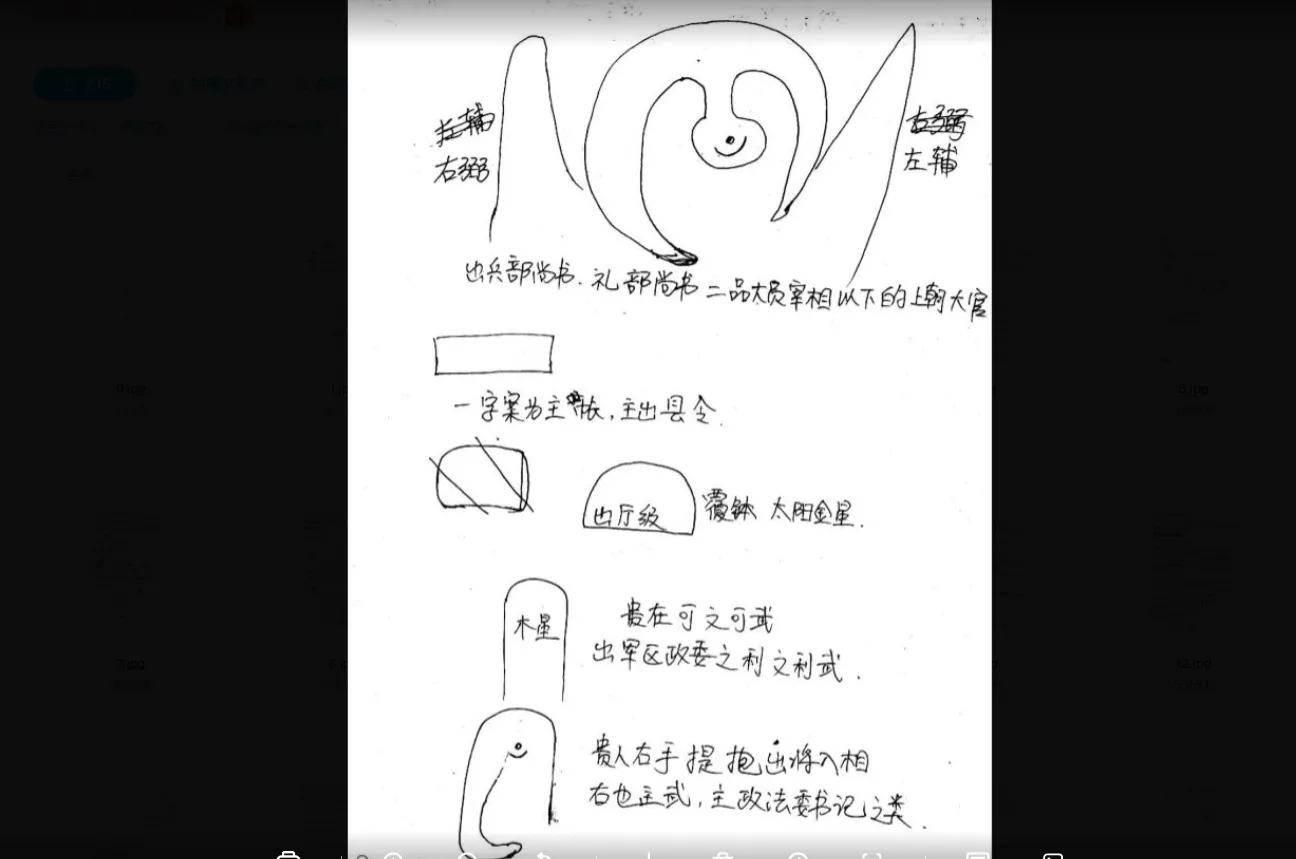 左辅
右弼
右弼
左辅
出兵部尚书.礼部尚书二品大员宰相以下的上朝大官
一字案为主 ,主出县令.
出厅级
覆钵 太阳金星.
木星
贵在可文可武
出军区政委之利文利武.
贵人右手提抱出将入相
右也主武,主政法委书记之类.